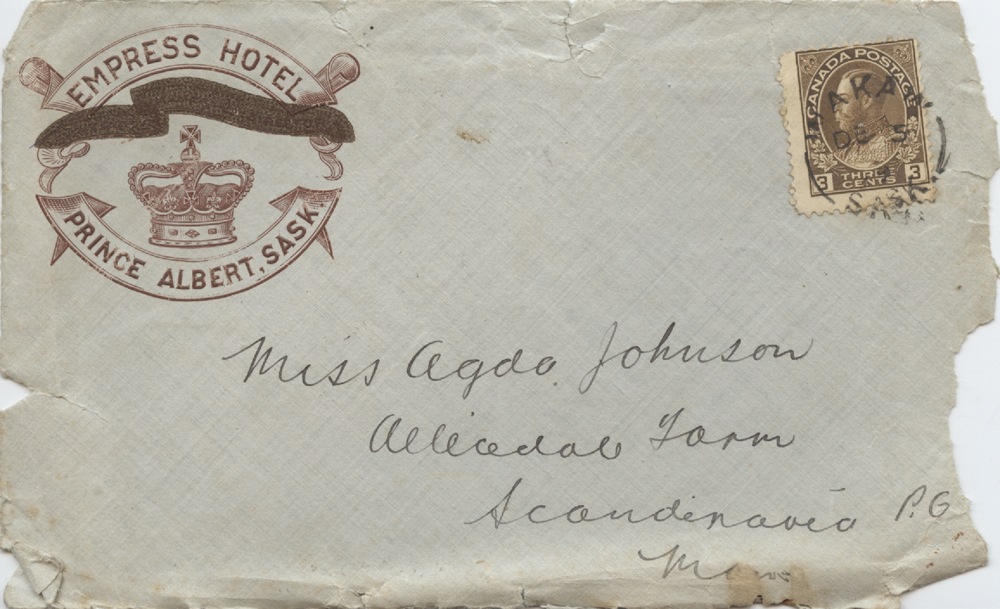 EMPRESS HOTEL
PRINCE ALBERT, SASK
CANADA POSTAGE
3 THREE CENTS 3
DE 5
SASK.
Miss Agda Johnson
Allicedale Farm
Scandinavia P.O
Man